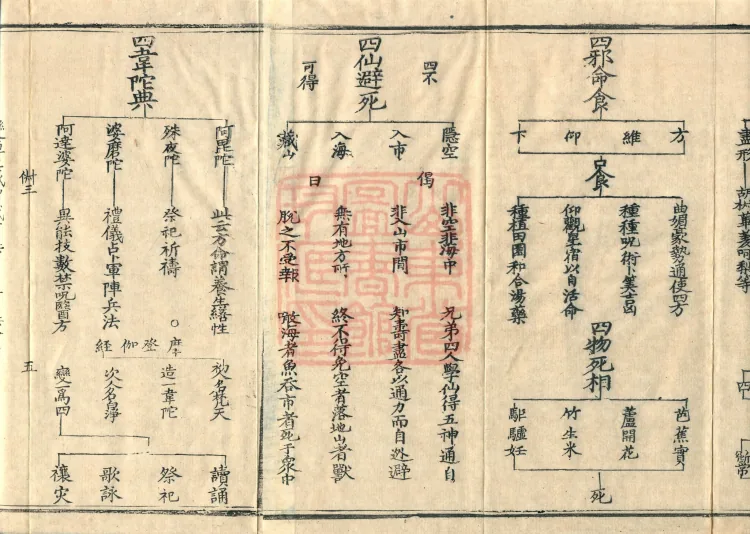 四邪命食
方
維
仰
下
食
曲媚豪勢通使四方
種種呪術卜筭吉凶
仰觀星宿以自活命
種植田園和合湯藥
四物死相
芭蕉實
蘆開花
竹生米
駏驉妊
死
四不
可得
四仙避死
隱空
入市
入海
藏山
偈
曰
非空非海中
非入山市間
無有地方所
脫之不受報
兄弟四人學仙得五神通自
知壽盡各以通力而自迯避
終不得免空者落地山者獸
海者魚吞市者死于眾中
四韋陀典
阿毘陀
殊夜陀
婆磨陀
阿達婆陀
此云方命謂養生繕性
祭祀祈禱
禮儀占卜軍陣兵法
異能技數禁呪醫方
摩𨁝伽經
初名梵天
造一韋陀
次人名淨
變一為四
讀誦
祭祀
歌詠
禳災
五